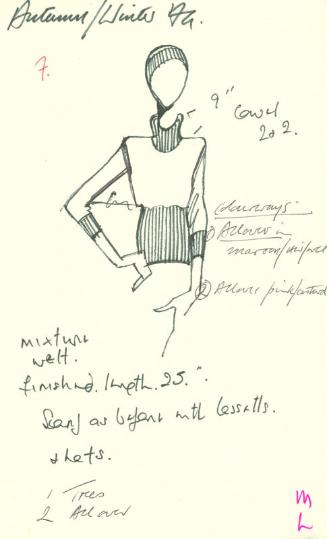 Autumn/Winter 74.
7.
9" cowl
2x2.
Colourways:
① Allover in
maroon/
② Allover pink/custard
mixture
welt.
finished. length. 25.".
as before with
1 Trees
2 Allover
M
L